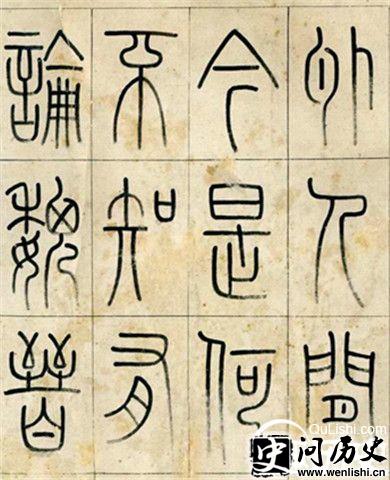 外人間
今是何
不知有
論魏晉
QuLishi.com
问历史
www.wenlishi.cn